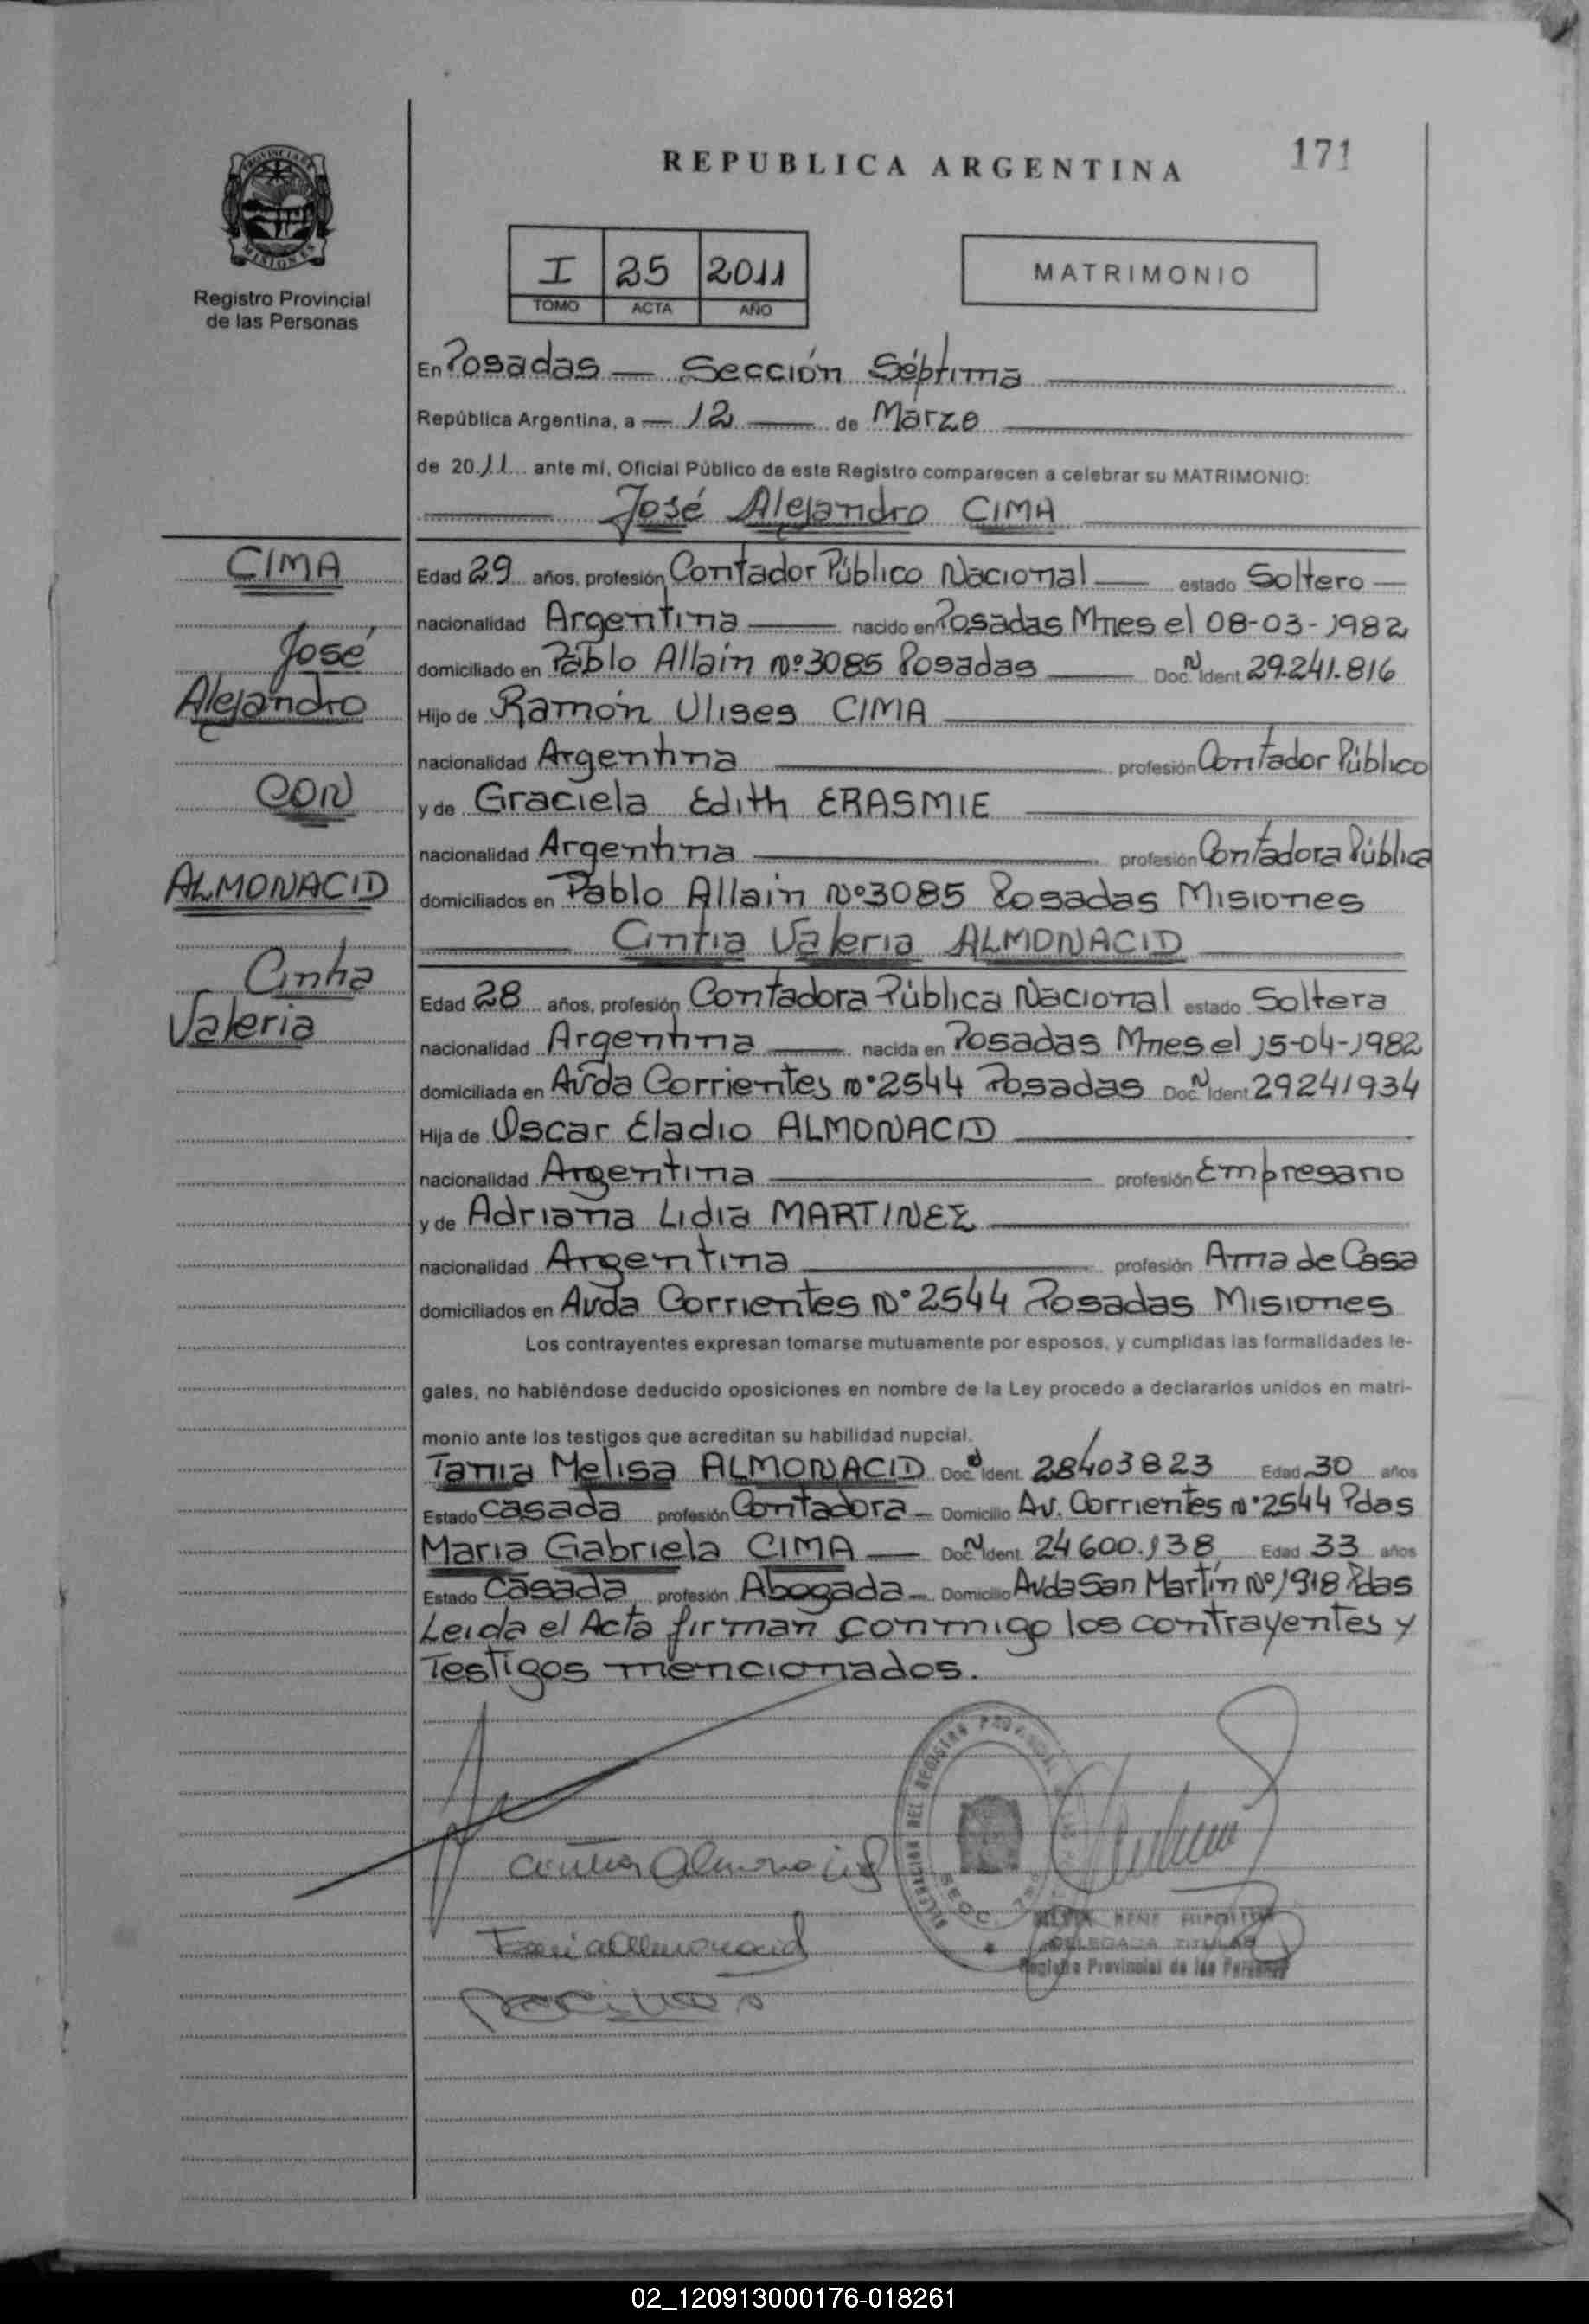 REPUBLICA ARGENTINA
171
PROVINCIA DE
MISIONES
Registro Provincial
de las Personas
I 25 2011
TOMO ACTA AÑO
MATRIMONIO
En Posadas — Sección Séptima
República Argentina, a — 12 — de Marzo
de 2011 ante mí, Oficial Público de este Registro comparecen a celebrar su MATRIMONIO:
José Alejandro CIMA
CIMA
José
Alejandro
CON
ALMONACID
Cintia
Valeria
Edad 29 años, profesión Contador Público Nacional — estado Soltero —
nacionalidad Argentina — nacido en Posadas Mnes el 08-03-1982
domiciliado en Pablo Allain Nº 3085 Posadas — Doc. N Ident. 29.241.816
Hijo de Ramón Ulises CIMA
nacionalidad Argentina — profesión Contador Público
y de Graciela Edith ERASMIE
nacionalidad Argentina — profesión Contadora Pública
domiciliados en Pablo Allain Nº 3085 Posadas Misiones
Cintia Valeria ALMONACID
Edad 28 años, profesión Contadora Pública Nacional estado Soltera
nacionalidad Argentina — nacida en Posadas Mnes el 15-04-1982
domiciliada en Avda Corrientes Nº 2544 Posadas Doc. N Ident. 29241934
Hija de Oscar Eladio ALMONACID
nacionalidad Argentina — profesión Empresario
y de Adriana Lidia MARTINEZ
nacionalidad Argentina — profesión Ama de Casa
domiciliados en Avda Corrientes Nº 2544 Posadas Misiones
Los contrayentes expresan tomarse mutuamente por esposos, y cumplidas las formalidades le-
gales, no habiéndose deducido oposiciones en nombre de la Ley procedo a declararlos unidos en matri-
monio ante los testigos que acreditan su habilidad nupcial.
Tania Melisa ALMONACID Doc. N Ident. 28403823 Edad 30 años
Estado Casada profesión Contadora — Domicilio Av. Corrientes Nº 2544 Pdas
Maria Gabriela CIMA — Doc. N Ident. 24600.138 Edad 33 años
Estado Casada profesión Abogada — Domicilio Avda San Martín Nº 1918 Pdas
Leida el Acta firman conmigo los contrayentes y
Testigos mencionados.
Cintia Almonacid
Tania Almonacid
DELEGACION DEL REGISTRO PROVINCIAL
SECC. 7
RENE HIPOLITO
DELEGADA TITULAR
Registro Provincial de las Personas
02_120913000176-018261